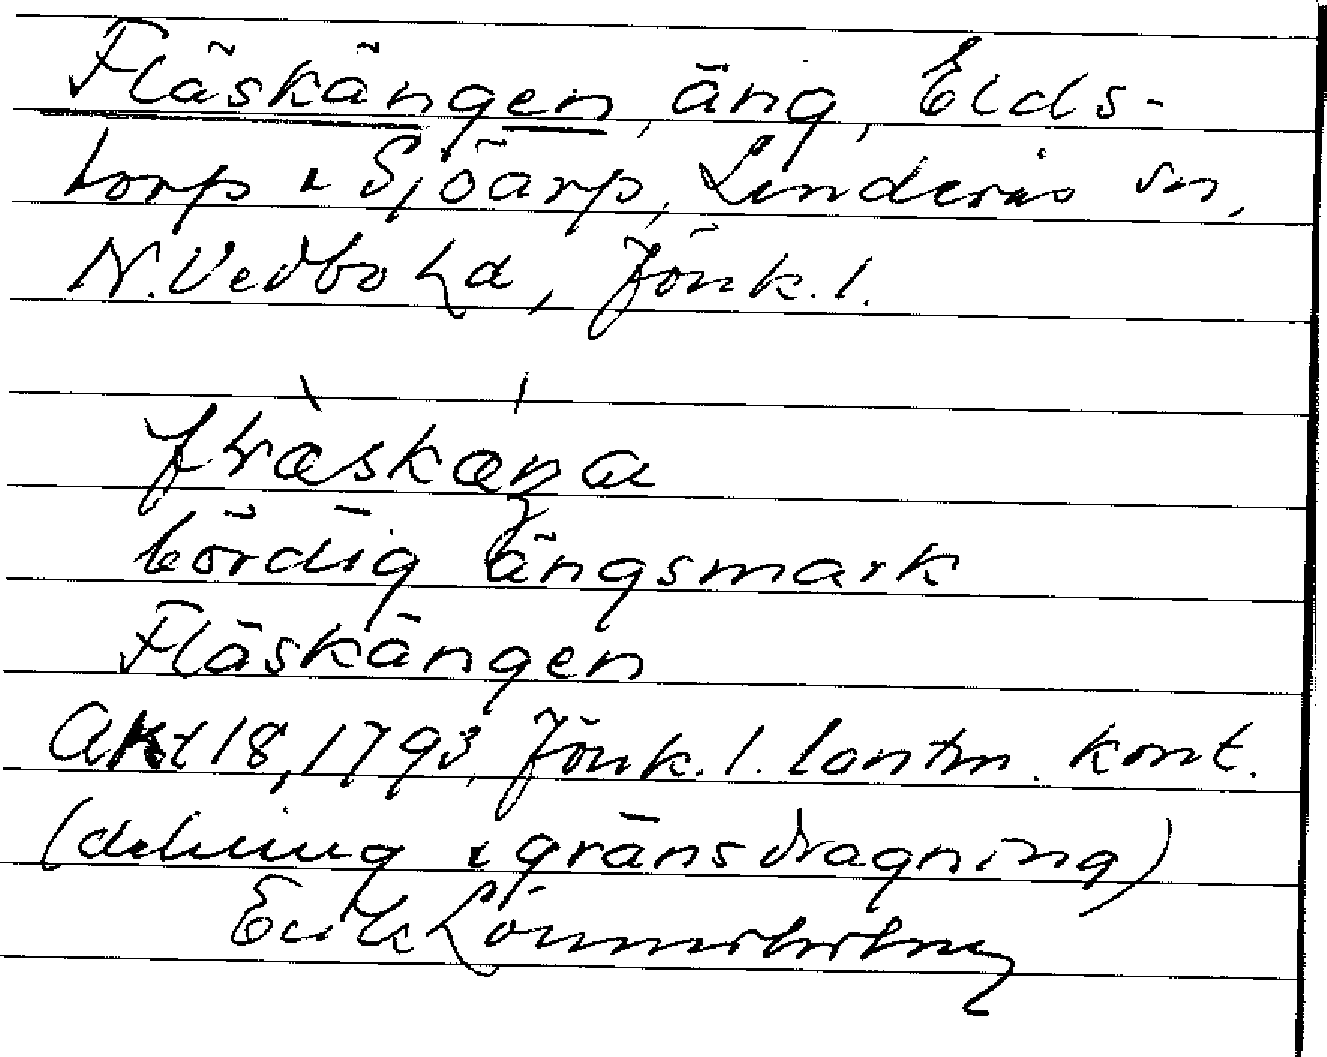 Fläskängen, äng, Elds-
torp & Sjöarp, Linderås sn,
N. Vedbo hd, Jönk. l.
fläskæŋa
bördig ängsmark
Fläskängen
Akt 18, 1793, Jönk. l. lantm. kont.
(delning & gränsdragning)
Erik Lönnerholm